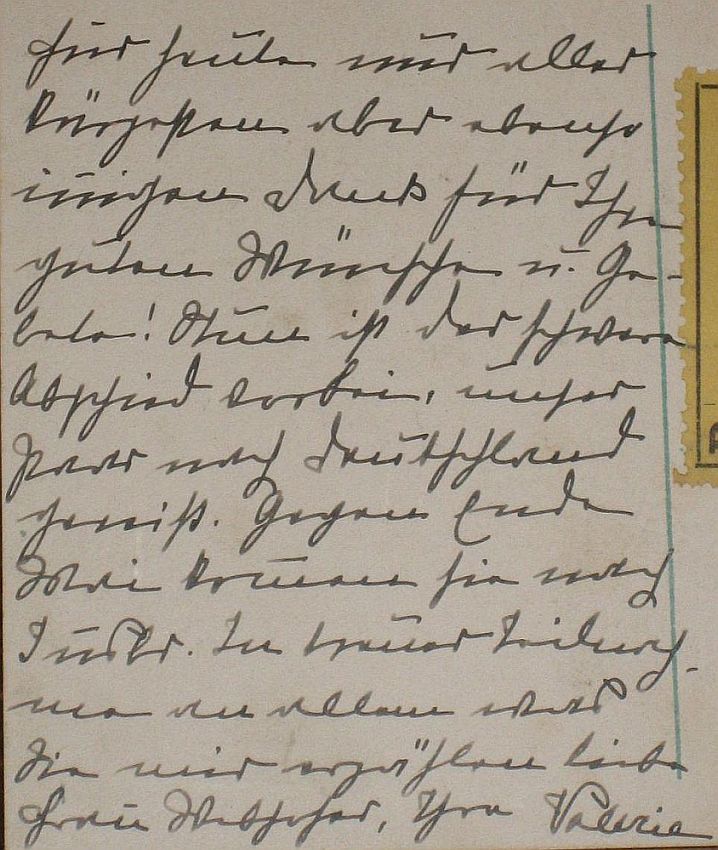 Für heute nur aller
kürzesten aber ebenso
innigen Dank für Ihre
guten Wünsche u. Ge-
bete! Nun ist der schwere
Abschied vorbei, unser
Paar nach Deutschland
gereist. Gegen Ende
Mai kommen sie nach
Innsbr. In treuer Teilnah-
me an allem was
Sie mir erzählen liebe
Frau Ihre Valerie